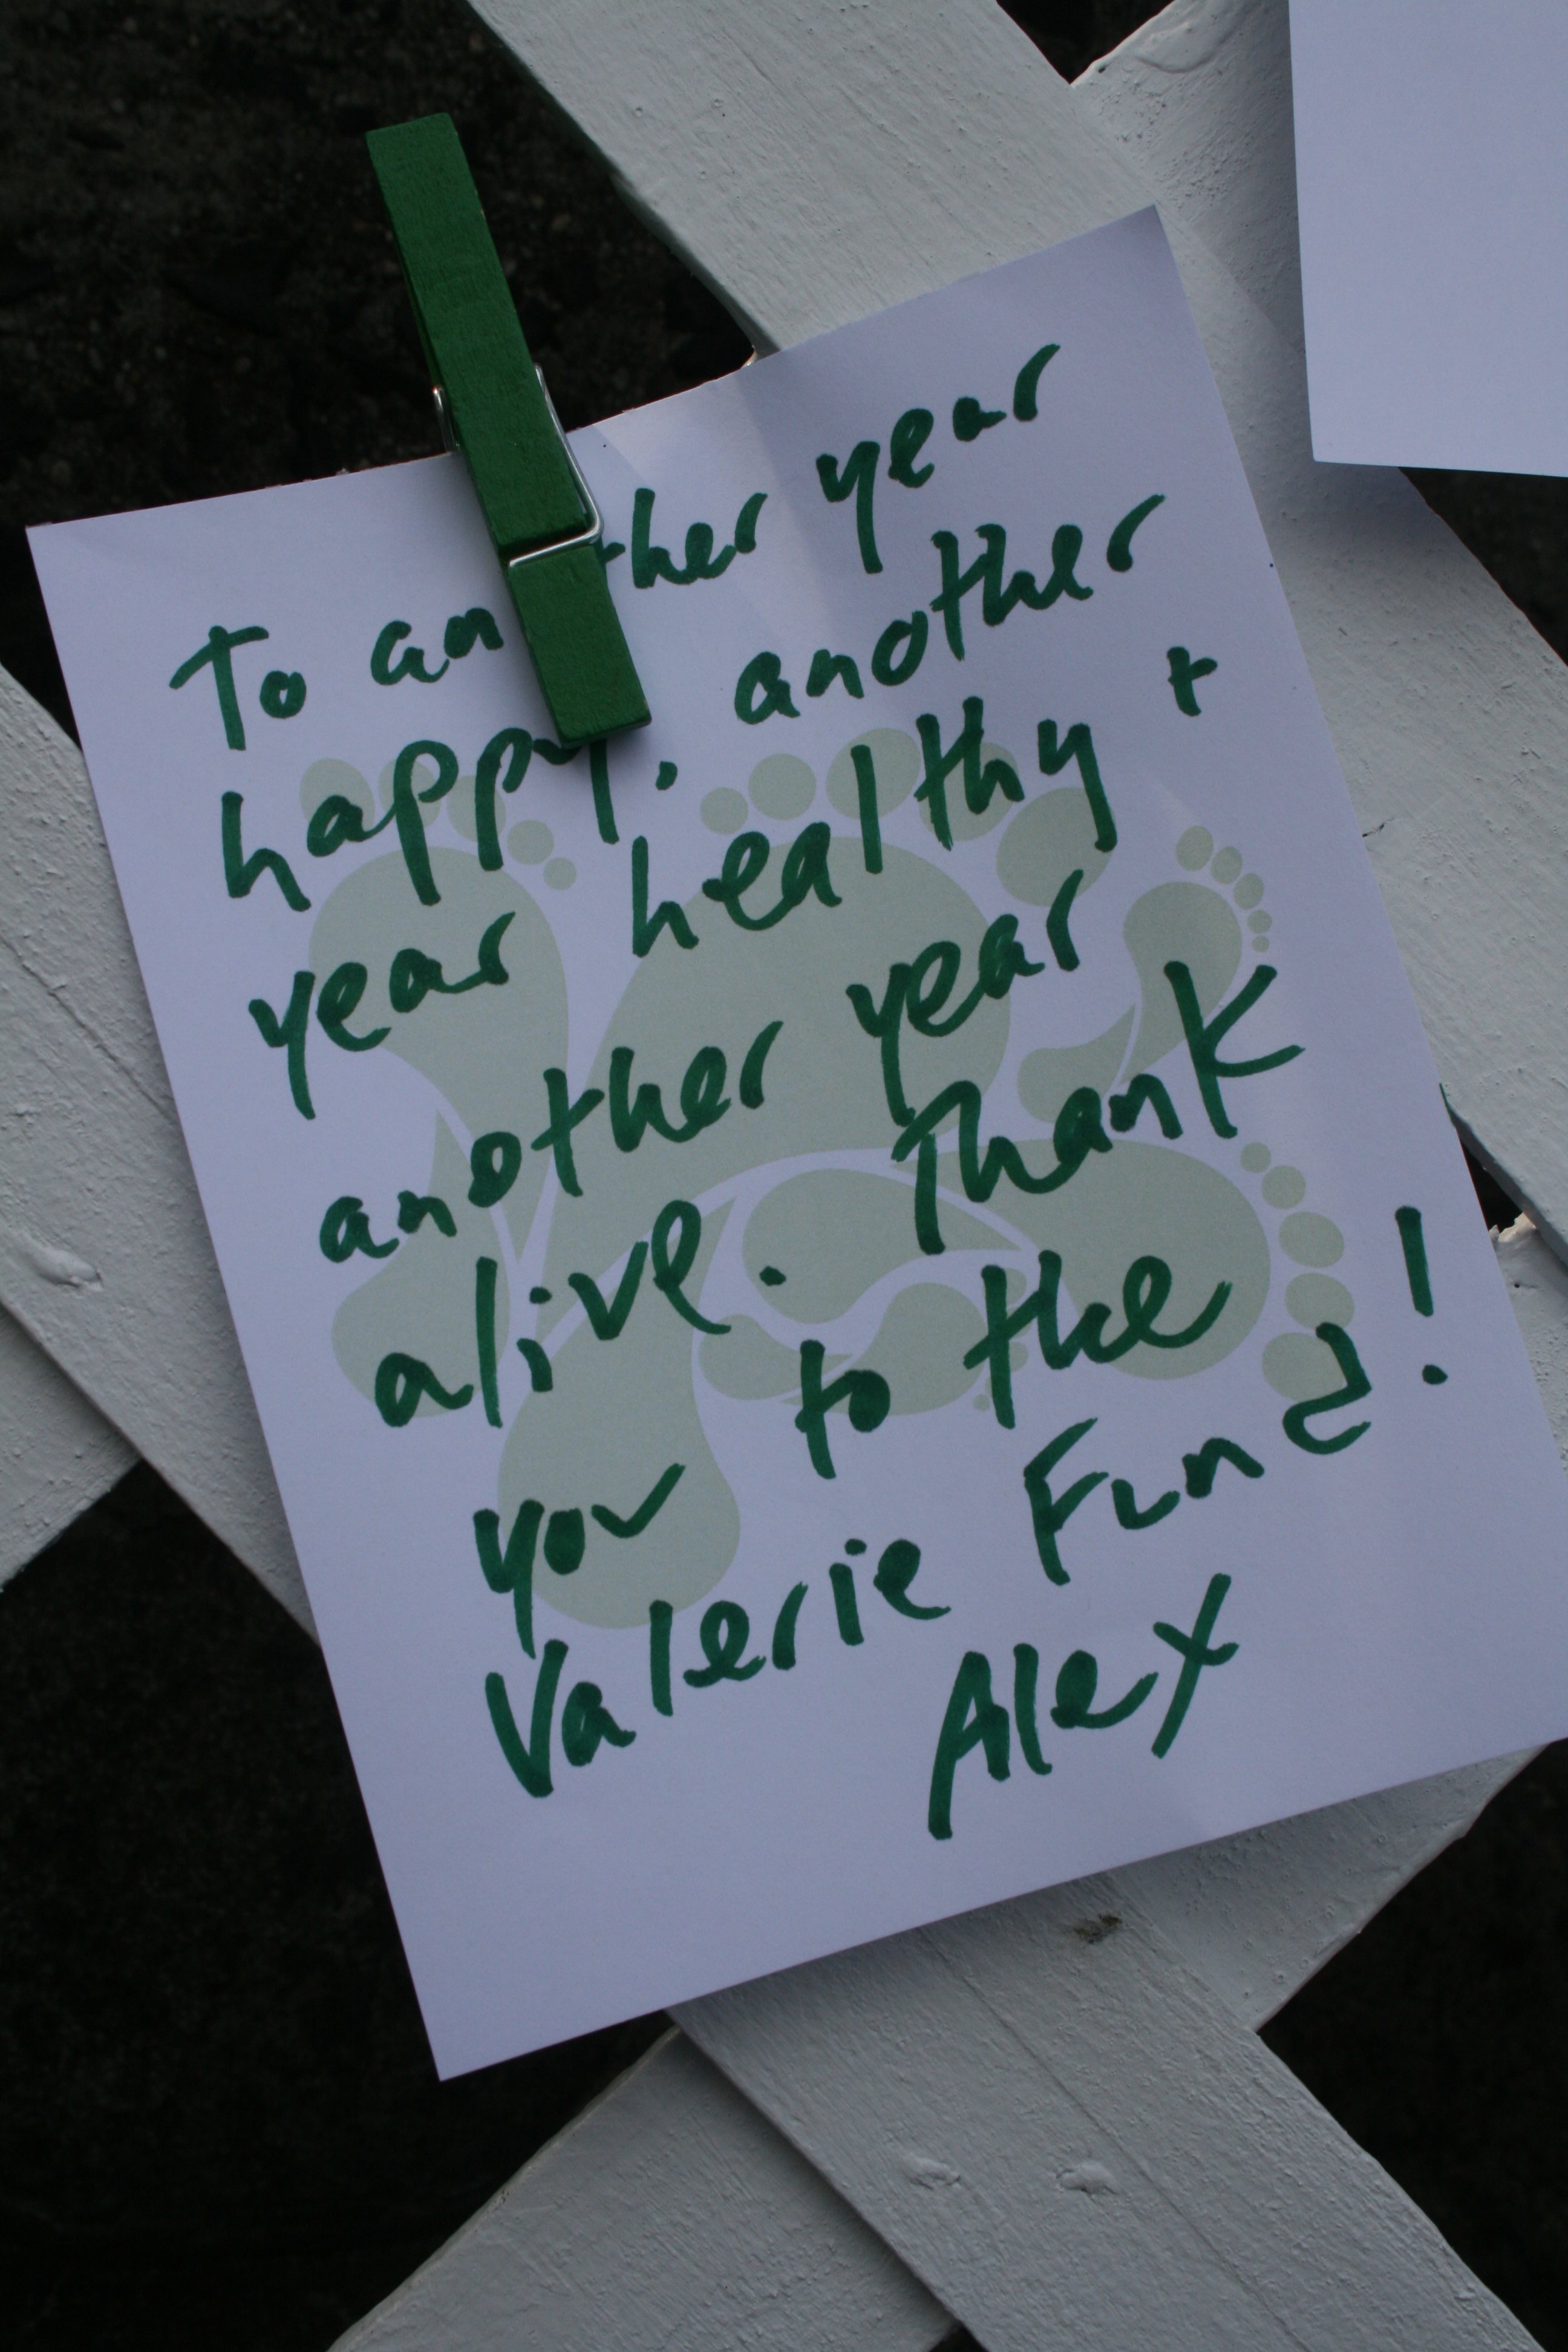 To another year
happy. another
year healthy +
another year
alive. Thank
you to the
Valerie Fund!
Alex